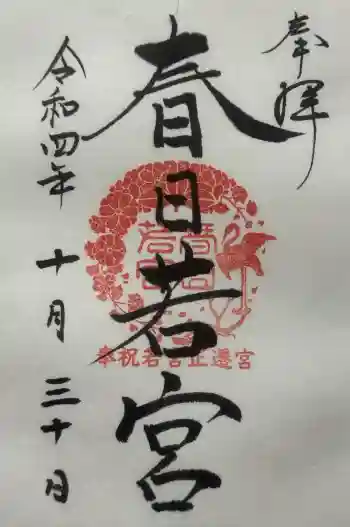 奉拝
春日若宮
令和四年 十月 三十日
若宮
春日
奉祝若宮正遷宮